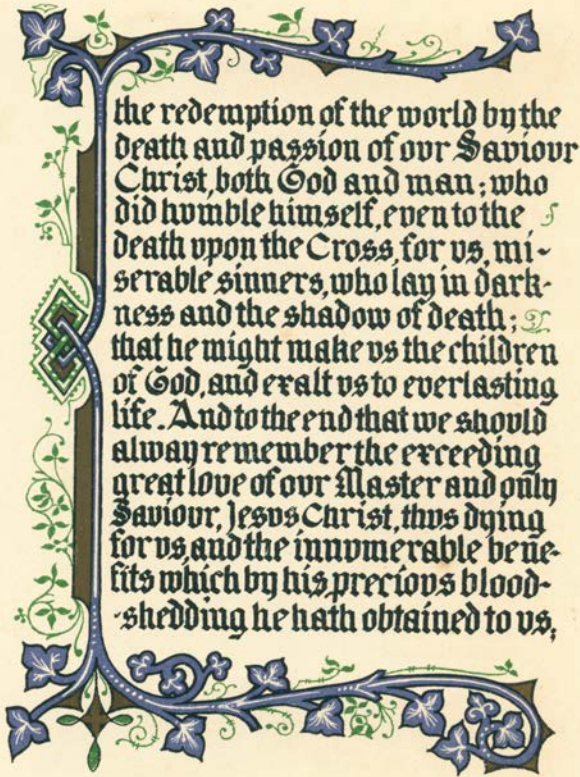 the redemption of the world by the
death and passion of ovr Saviovr
Christ, both God and man; who
did hvmble himself, even to the
death vpon the Cross, for vs, mi-
serable sinners, who lay in dark-
ness and the shadow of death;
that he might make vs the children
of God, and exalt vs to everlasting
life. And to the end that we shovld
alway remember the exceeding
great love of ovr Master and only
Saviovr, Jesvs Christ, thvs dying
for vs, and the innvmerable bene-
fits which by his preciovs blood-
-shedding he hath obtained to vs;